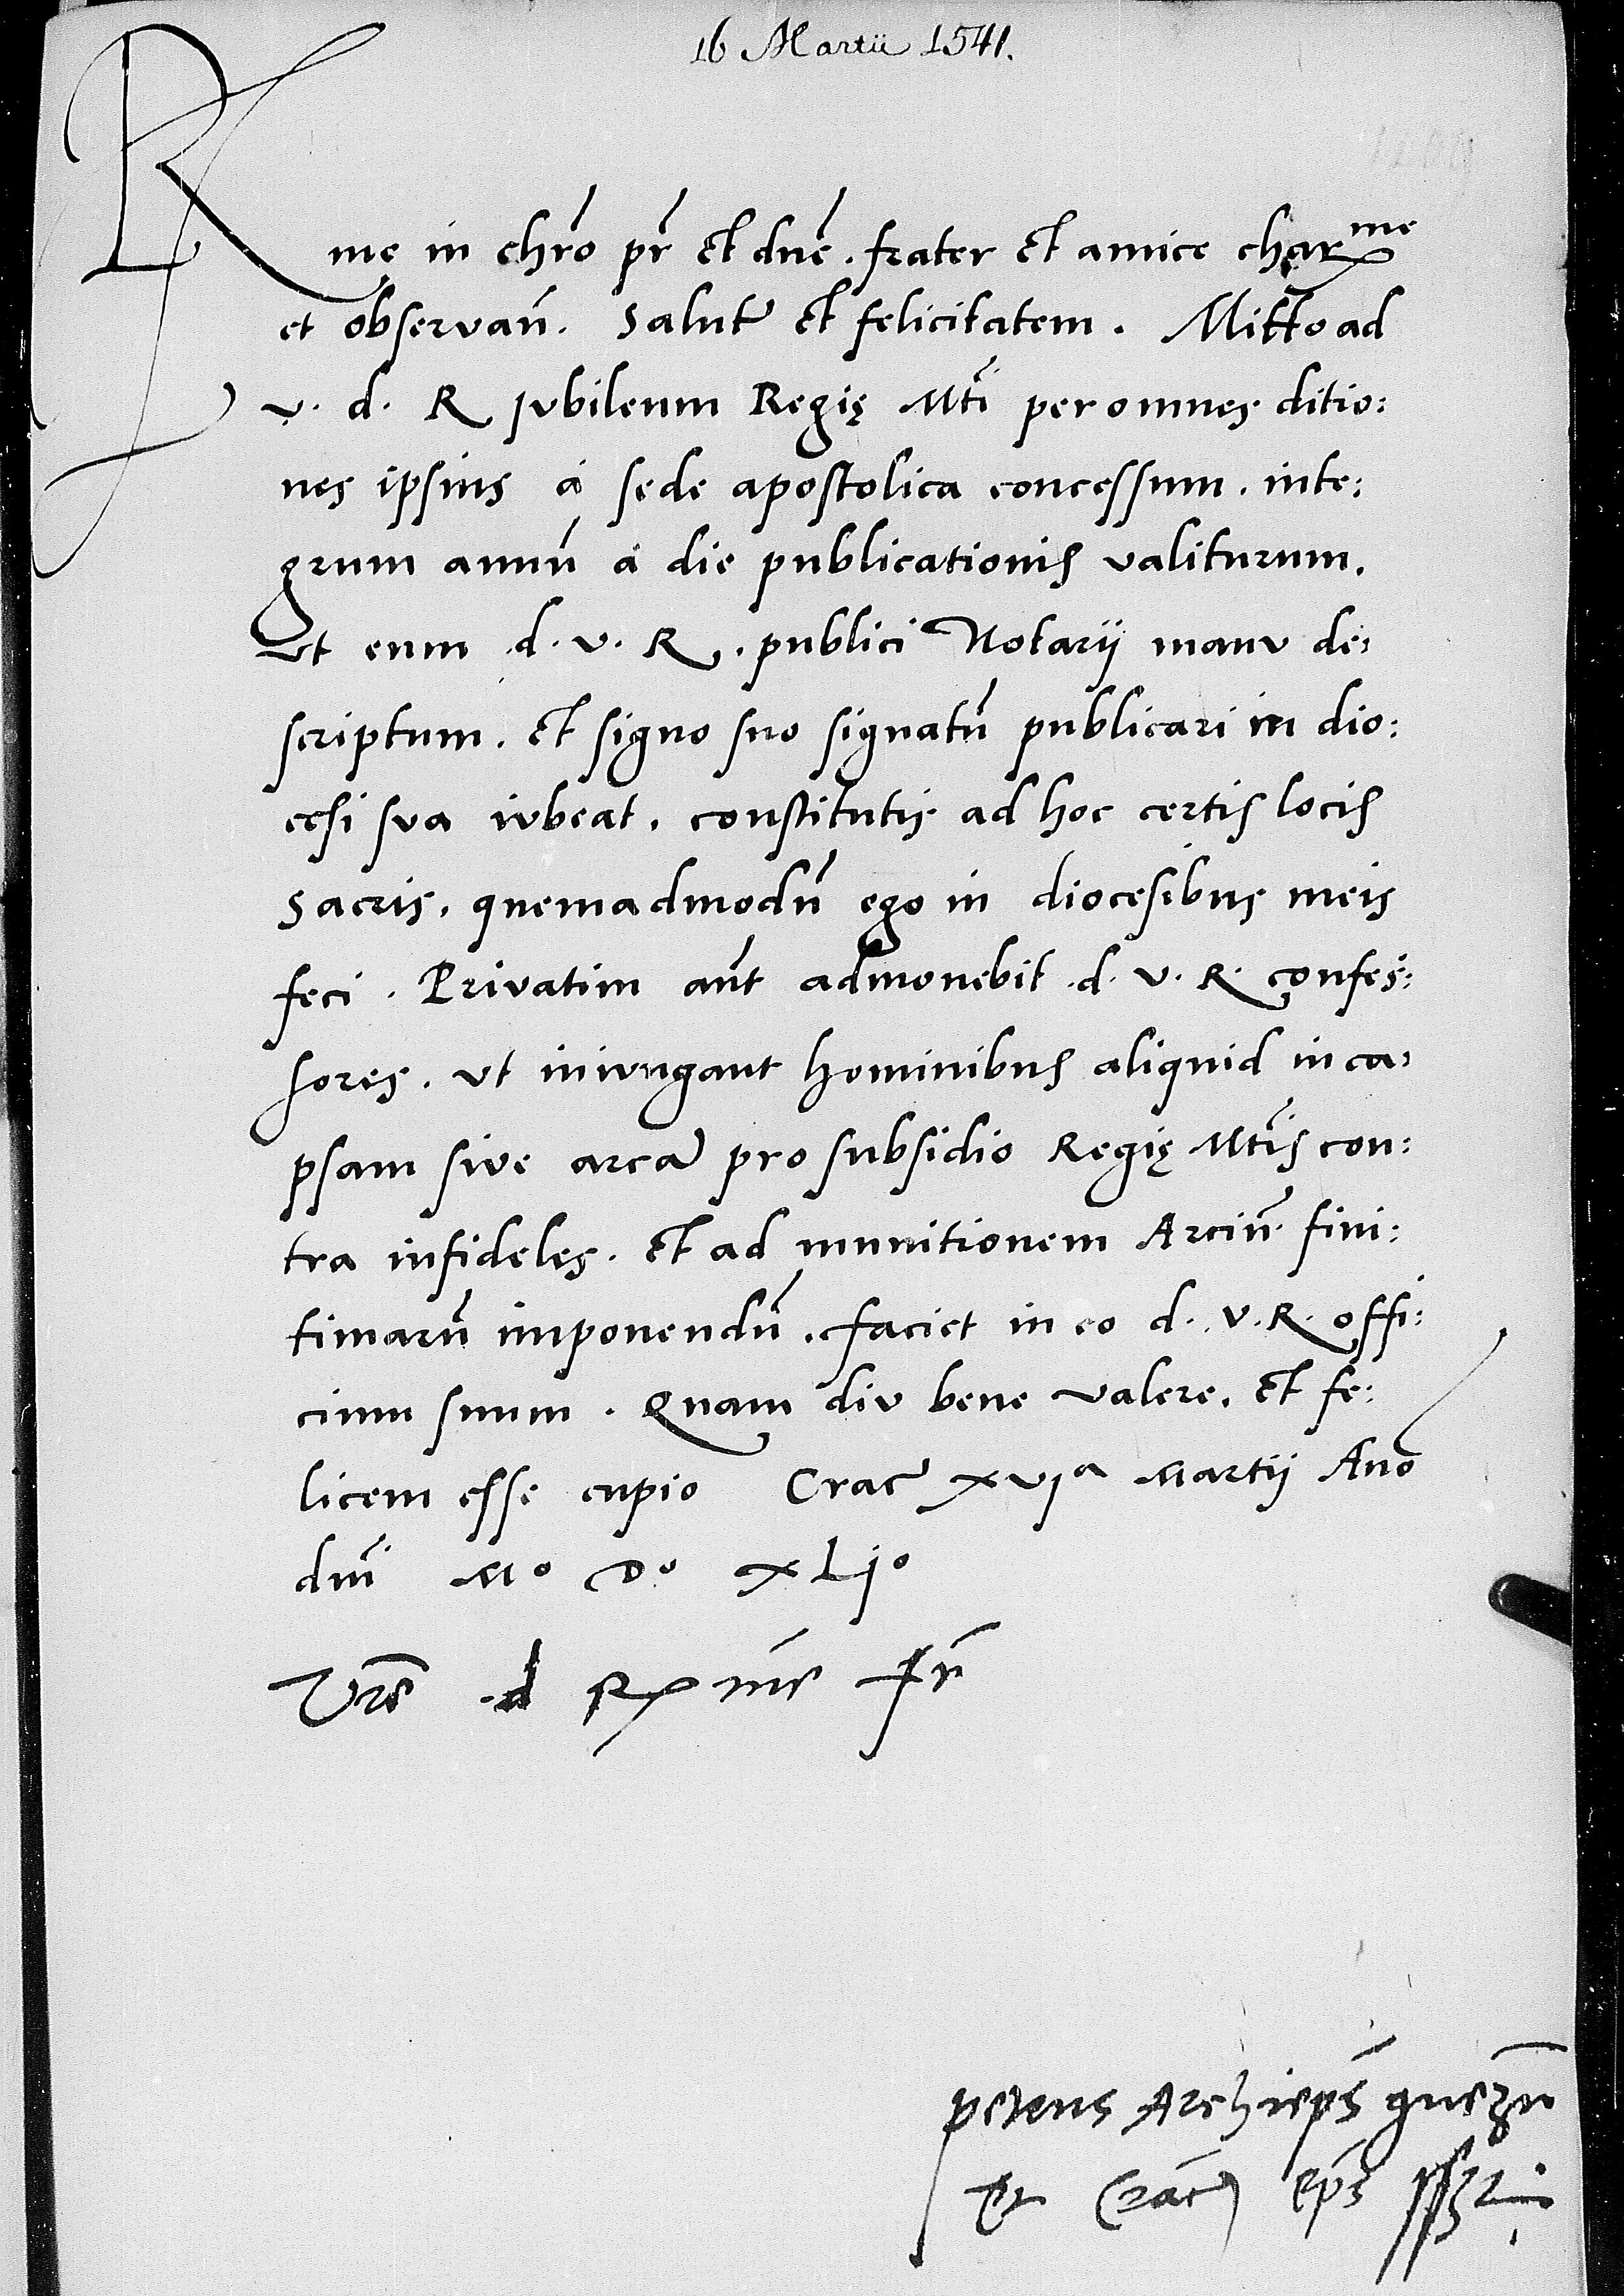 16 Martii 1541.
Rme in chro pr et dne. frater et amice charme
et observan. Salute et felicitatem. Mitto ad
v. d. R Jubileum Regię Mti per omnes ditio:
nes ipsius à sede apostolica concessum. inte:
grum annu à die publicationis valiturum.
Ut eum d. v. R. publici Notarij manu de:
scriptum. et signo suo signatu publicari in dio:
cesi sua iubeat. constitutis ad hoc certis locis
sacris. quemadmodu ego in diocesibus meis
feci. Privatim aut admonebit d. v. R. confes:
sores. ut iniungant hominibus aliquid in ca:
psam sive arca pro subsidio Regię Mtis con:
tra infideles. et ad munitionem Arciu fini:
timaru imponendu. faciet in eo d. v. R. offi:
cium suum. Quam diu bene valere. et fe:
licem esse cupio Crac xvja Martij Ano
dni Mo Do XLjo
Vre d R me fr
petrus Archieps gnezn
et Crac eps